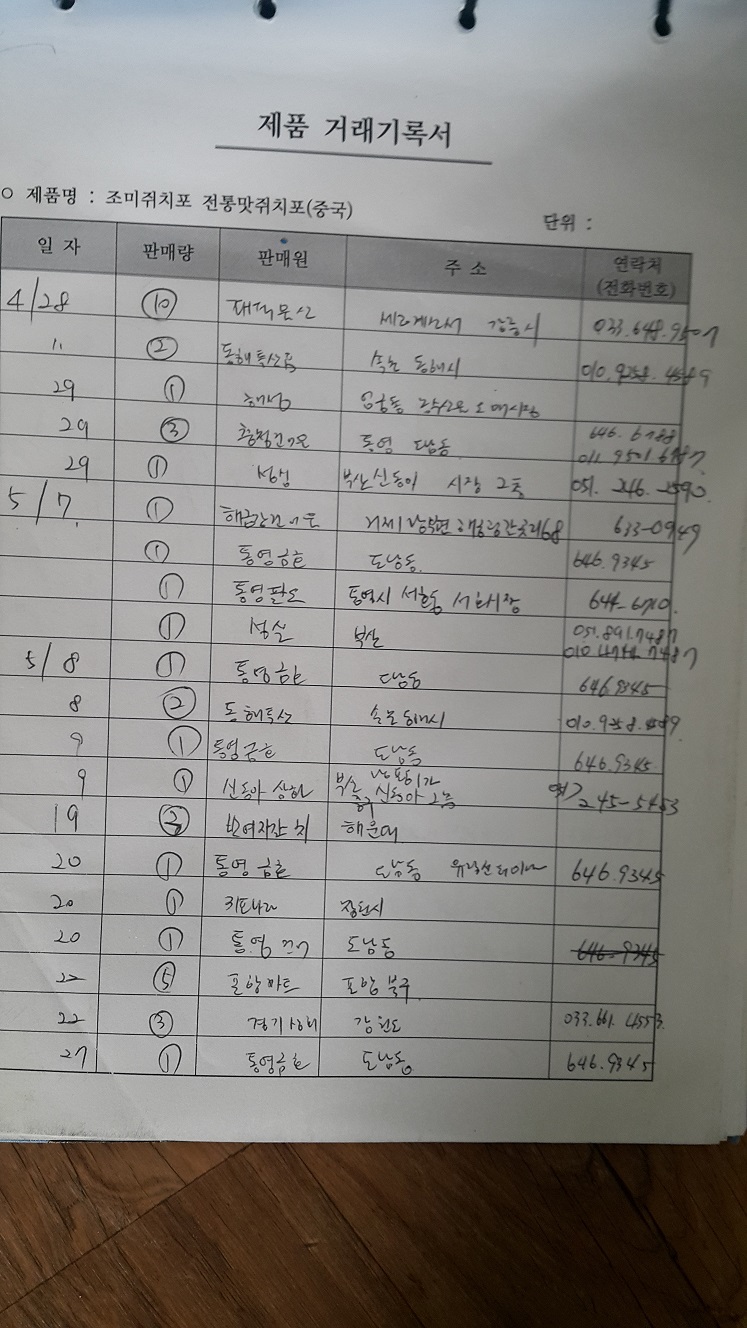 제품 거래기록서
○ 제품명 : 조미쥐치포 전통맛쥐치포(중국)
단위 :
일 자 판매량 판매원 주 소 연락처 (전화번호)
4/28 ⑩ 강릉시 033.648.9501
〃 ② 동해특산품 속초 동해시
29 ①
29 ③ 통영 도남동 646.6788
011.9501.6787
29 ① 부산 신동아 시장 2층 051. 246. -2590
5/7 ① 633-0949
① 통영금호 도남동 646.9345
① 통영 통영시 서호동 서호시장 644-6710
① 성실 부산 051.891.7487
5/8 ① 통영금호 도남동 646.9345
8 ② 동해특산 속초 동해시
9 ① 통영금호 도남동 646.9345
9 ① 신동아 상회 부산 신동아 245-5453
19 ② 해운대
20 ① 통영 금호 도남동 646.9345
20 ① 쥐포나라 창원시
20 ① 통영 도남동 646-9345
22 ⑤ 포항마트 포항 북구
22 ③ 경기상회 강원도 033.661.4553
27 ① 통영금호 도남동 646.9345